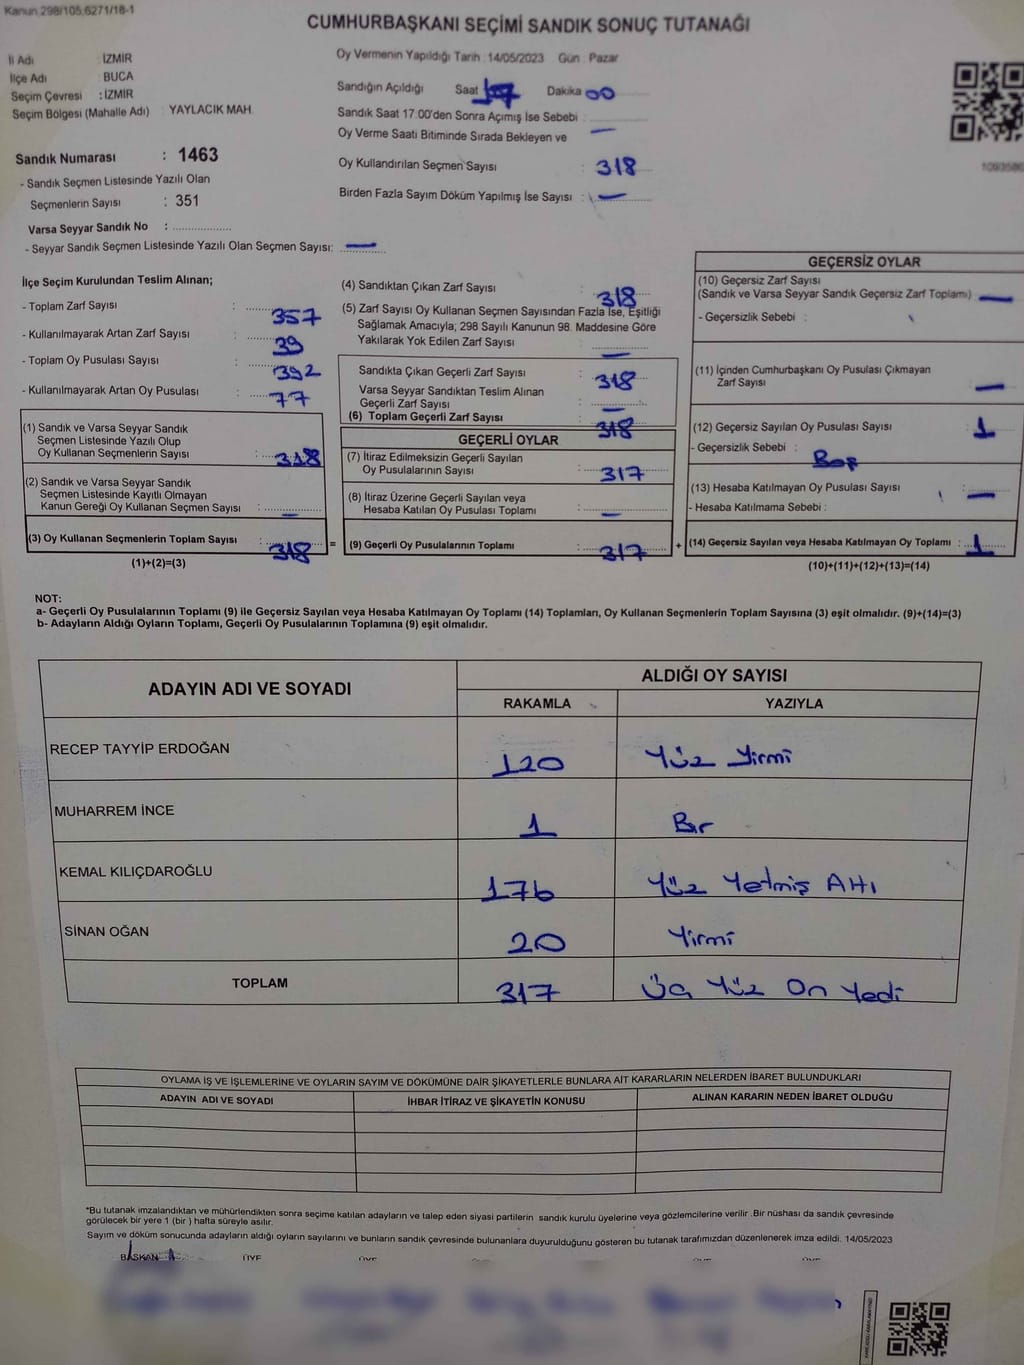 Kanun.298/105,6271/18-1
CUMHURBAŞKANI SEÇİMİ SANDIK SONUÇ TUTANAĞI
İl Adı : İZMİR
İlçe Adı : BUCA
Seçim Çevresi : İZMİR
Seçim Bölgesi (Mahalle Adı) : YAYLACIK MAH.
Sandık Numarası : 1463
- Sandık Seçmen Listesinde Yazılı Olan
Seçmenlerin Sayısı : 351
Varsa Seyyar Sandık No : ....................
- Seyyar Sandık Seçmen Listesinde Yazılı Olan Seçmen Sayısı: —
Oy Vermenin Yapıldığı Tarih : 14/05/2023 Gün : Pazar
Sandığın Açıldığı Saat 17 Dakika 00
Sandık Saat 17:00'den Sonra Açımış İse Sebebi : ....................
Oy Verme Saati Bitiminde Sırada Bekleyen ve —
Oy Kullandırılan Seçmen Sayısı : 318
Birden Fazla Sayım Döküm Yapılmış İse Sayısı : —
İlçe Seçim Kurulundan Teslim Alınan;
- Toplam Zarf Sayısı : 357
- Kullanılmayarak Artan Zarf Sayısı : 39
- Toplam Oy Pusulası Sayısı : 392
- Kullanılmayarak Artan Oy Pusulası : 77
(1) Sandık ve Varsa Seyyar Sandık
Seçmen Listesinde Yazılı Olup
Oy Kullanan Seçmenlerin Sayısı : 318
(2) Sandık ve Varsa Seyyar Sandık
Seçmen Listesinde Kayıtlı Olmayan
Kanun Gereği Oy Kullanan Seçmen Sayısı : —
(3) Oy Kullanan Seçmenlerin Toplam Sayısı : 318
(1)+(2)=(3)
(4) Sandıktan Çıkan Zarf Sayısı : 318
(5) Zarf Sayısı Oy Kullanan Seçmen Sayısından Fazla İse, Eşitliği
Sağlamak Amacıyla; 298 Sayılı Kanunun 98. Maddesine Göre
Yakılarak Yok Edilen Zarf Sayısı : —
Sandıkta Çıkan Geçerli Zarf Sayısı : 318
Varsa Seyyar Sandıktan Teslim Alınan
Geçerli Zarf Sayısı : —
(6) Toplam Geçerli Zarf Sayısı : 318
GEÇERLİ OYLAR
(7) İtiraz Edilmeksizin Geçerli Sayılan
Oy Pusulalarının Sayısı : 317
(8) İtiraz Üzerine Geçerli Sayılan veya
Hesaba Katılan Oy Pusulası Toplamı : —
= (9) Geçerli Oy Pusulalarının Toplamı : 317
GEÇERSİZ OYLAR
(10) Geçersiz Zarf Sayısı
(Sandık ve Varsa Seyyar Sandık Geçersiz Zarf Toplamı) : —
- Geçersizlik Sebebi :
(11) İçinden Cumhurbaşkanı Oy Pusulası Çıkmayan
Zarf Sayısı : —
(12) Geçersiz Sayılan Oy Pusulası Sayısı : 1
- Geçersizlik Sebebi : Boş
(13) Hesaba Katılmayan Oy Pusulası Sayısı : —
- Hesaba Katılmama Sebebi :
+ (14) Geçersiz Sayılan veya Hesaba Katılmayan Oy Toplamı : 1
(10)+(11)+(12)+(13)=(14)
NOT:
a- Geçerli Oy Pusulalarının Toplamı (9) ile Geçersiz Sayılan veya Hesaba Katılmayan Oy Toplamı (14) Toplamları, Oy Kullanan Seçmenlerin Toplam Sayısına (3) eşit olmalıdır. (9)+(14)=(3)
b- Adayların Aldığı Oyların Toplamı, Geçerli Oy Pusulalarının Toplamına (9) eşit olmalıdır.
ADAYIN ADI VE SOYADI ALDIĞI OY SAYISI
RAKAMLA YAZIYLA
RECEP TAYYİP ERDOĞAN 120 Yüz Yirmi
MUHARREM İNCE 1 Bir
KEMAL KILIÇDAROĞLU 176 Yüz Yetmiş Altı
SİNAN OĞAN 20 Yirmi
TOPLAM 317 Üç Yüz On Yedi
OYLAMA İŞ VE İŞLEMLERİNE VE OYLARIN SAYIM VE DÖKÜMÜNE DAİR ŞİKAYETLERLE BUNLARA AİT KARARLARIN NELERDEN İBARET BULUNDUKLARI
ADAYIN ADI VE SOYADI İHBAR İTİRAZ VE ŞİKAYETİN KONUSU ALINAN KARARIN NEDEN İBARET OLDUĞU
*Bu tutanak imzalandıktan ve mühürlendikten sonra seçime katılan adayların ve talep eden siyasi partilerin sandık kurulu üyelerine veya gözlemcilerine verilir .Bir nüshası da sandık çevresinde
görülecek bir yere 1 (bir ) hafta süreyle asılır.
Sayım ve döküm sonucunda adayların aldığı oyların sayılarını ve bunların sandık çevresinde bulunanlara duyurulduğunu gösteren bu tutanak tarafımızdan düzenlenerek imza edildi. 14/05/2023
BAŞKAN ÜYE ÜYE ÜYE ÜYE